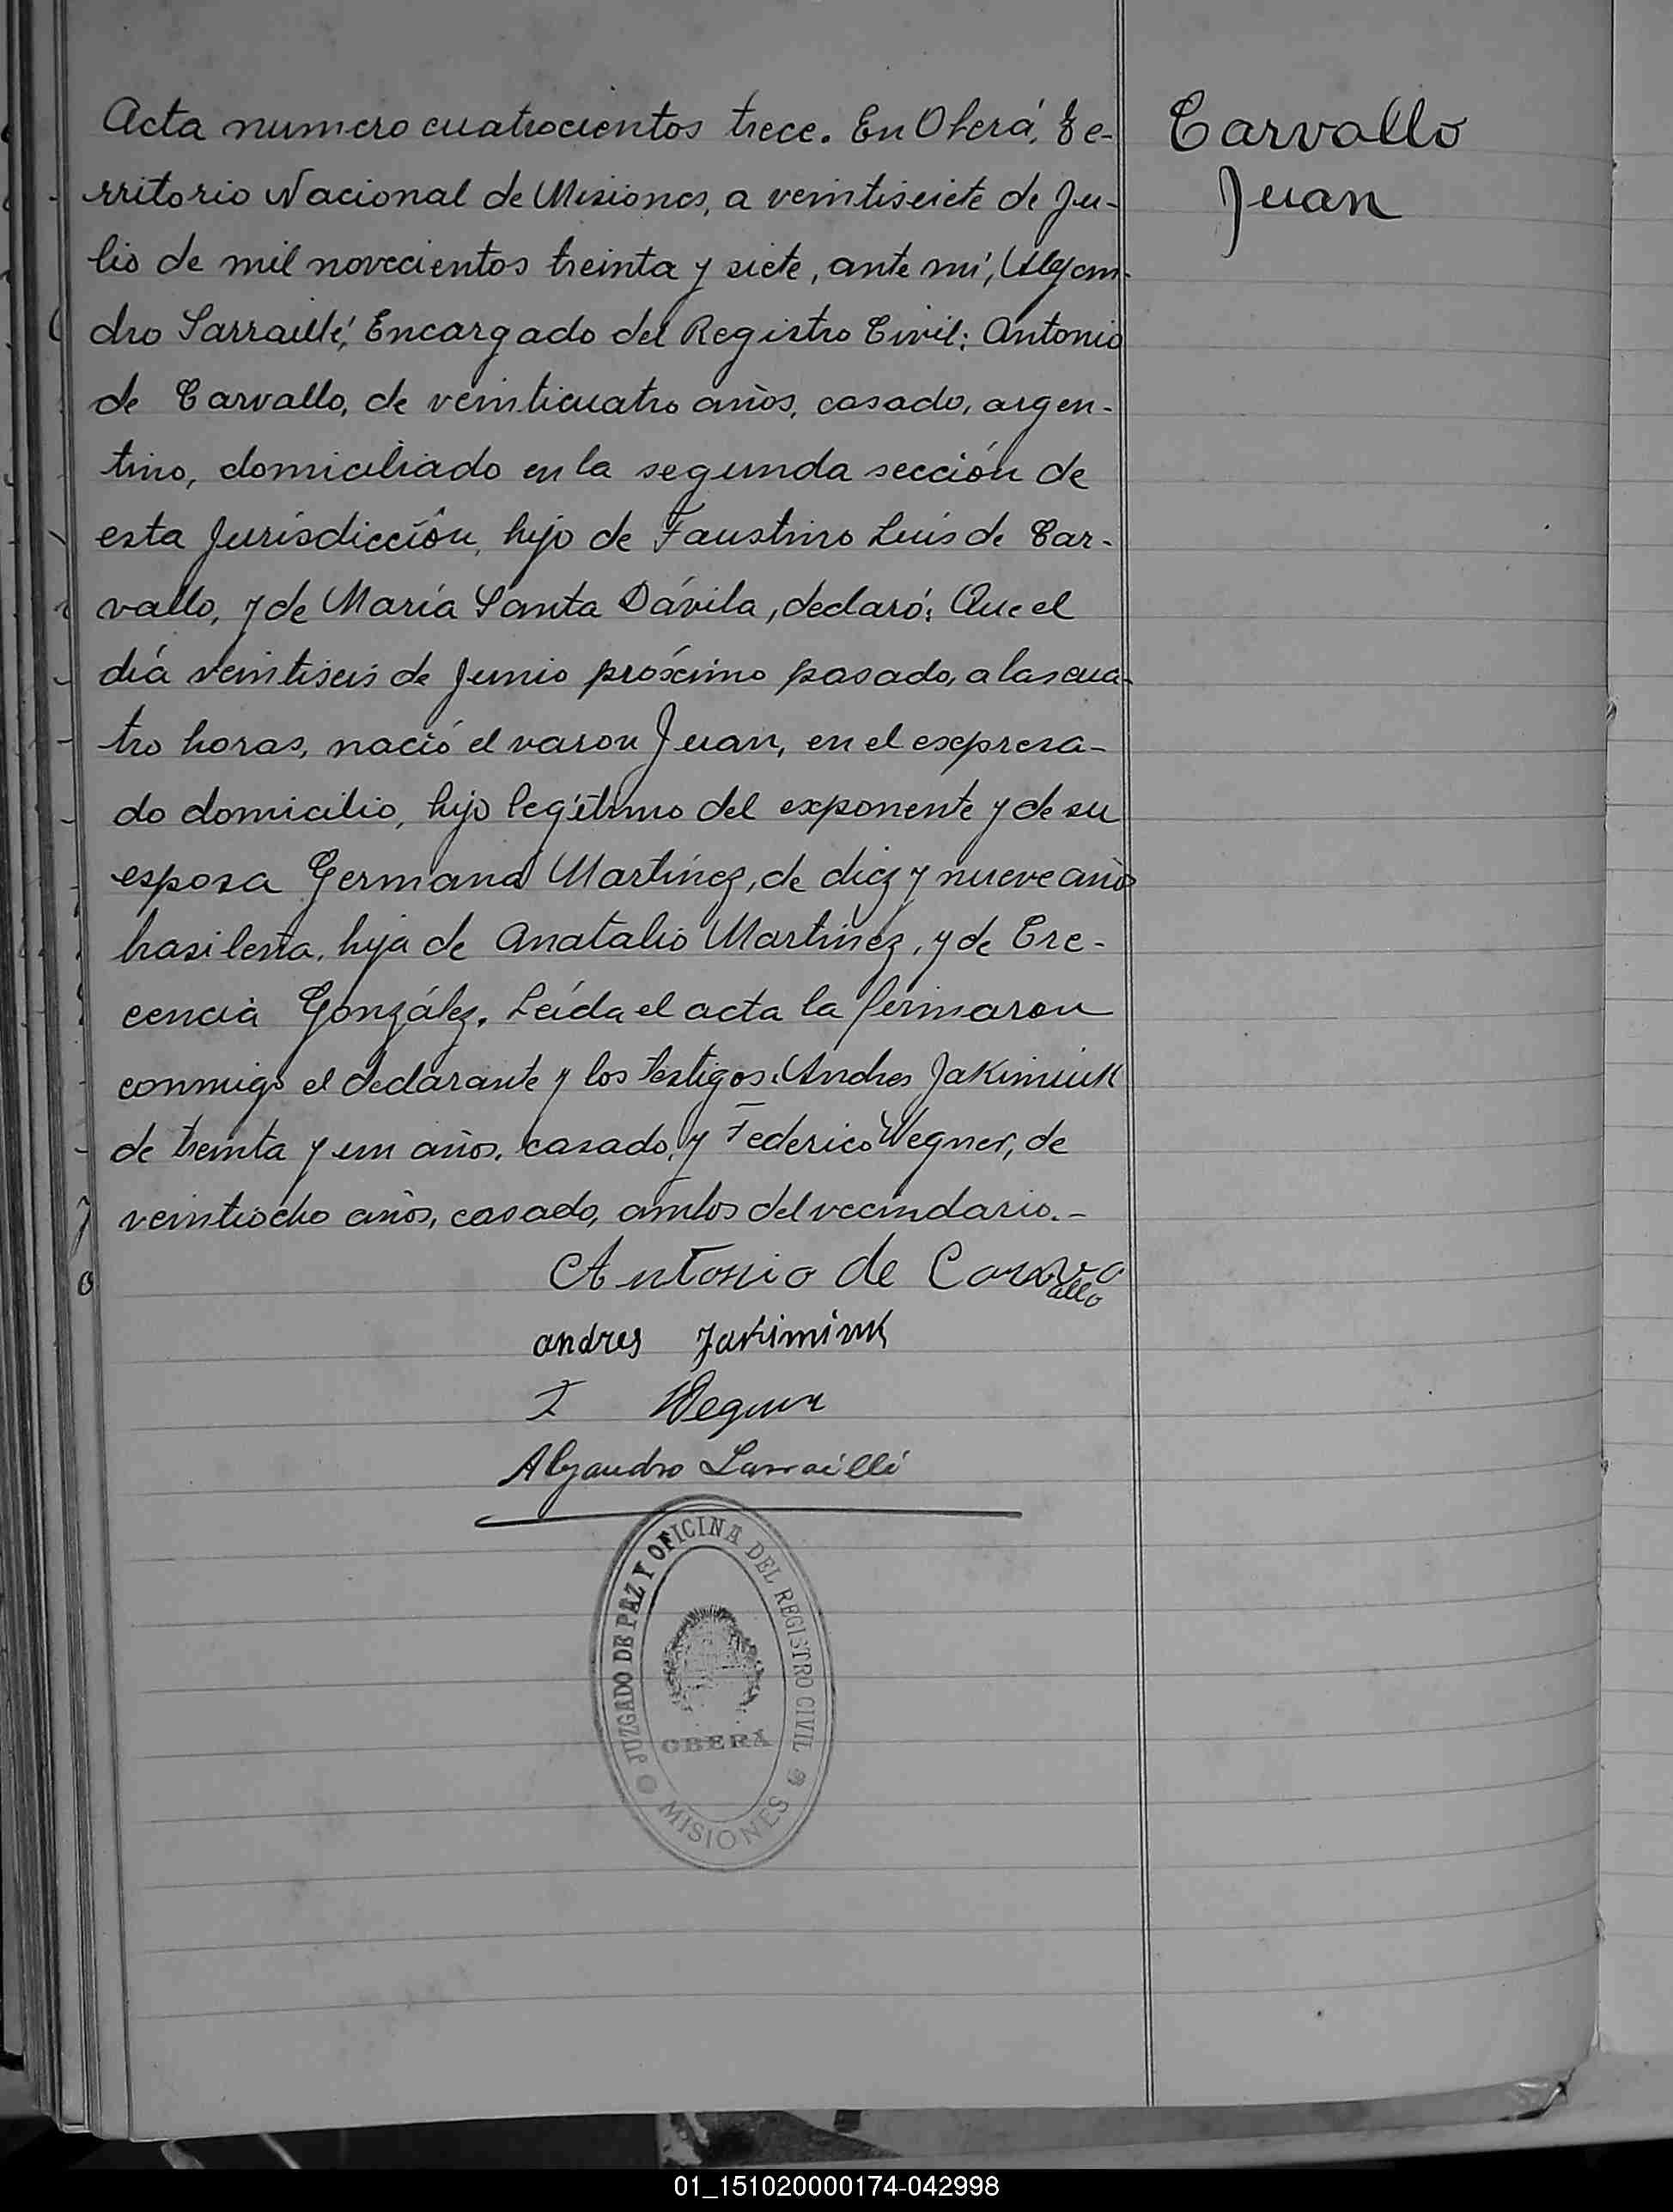 Acta numero cuatrocientos trece. En Oberá, Te-
rritorio Nacional de Misiones, a veintisiete de Ju-
lio de mil novecientos treinta y siete, ante mí, Alejan-
dro Sarraillé, Encargado del Registro Civil: Antonio
de Carvallo, de veinticuatro años, casado, argen-
tino, domiciliado en la segunda sección de
esta Jurisdicción, hijo de Faustino Luis de Car-
vallo, y de María Santa Dávila, declaró: Que el
día veintiseis de Junio próximo pasado, a las cua-
tro horas, nació el varon Juan, en el expresa-
do domicilio, hijo legítimo del exponente y de su
esposa Germana Martínez, de diez y nueve años
brasileña, hija de Anatalio Martínez, y de Cre-
cencia González. Leída el acta la firmaron
conmigo el declarante y los testigos: Andres Jakimiuk
de treinta y un años, casado, y Federico Wegner, de
veintiocho años, casado, ambos del vecindario.-
Antonio de Carva
allo
andres Jakimiuk
F Wegner
Alejandro Sarraillé
Carvallo
Juan
JUZGADO DE PAZ Y OFICINA DEL REGISTRO CIVIL
OBERA
MISIONES
01_151020000174-042998